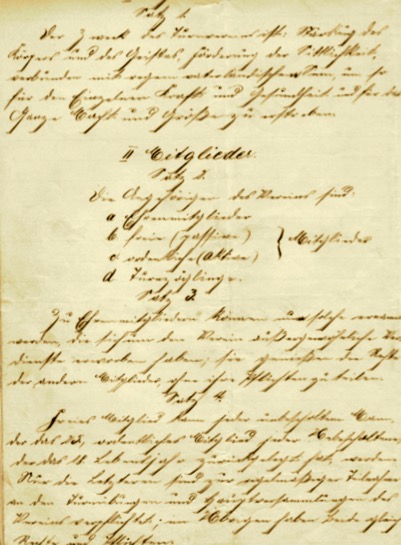 Satz 1.
Der Zweck des Turnvereins ist: Stärkung des
Körpers und des Geistes, Förderung der Sittlichkeit,
verbunden mit regem vaterländischem Sinn, um so
für den Einzelnen Kraft und Gesundheit und für das
Ganze Macht und Größe zu erstreben.
II Mitglieder.
Satz 2.
Die Angehörigen des Vereins sind:
a Ehrenmitglieder
b freie (passive) } Mitglieder
c ordentliche (aktive)
d. Turnzöglinge.
Satz 3.
Zu Ehrenmitgliedern können nur solche ernannt
werden, die sich um den Verein außergewöhnliche Ver
dienste erworben haben; sie genießen die Rechte
der andern Mitglieder, ohne ihre Pflichten zu teilen.
Satz 4.
Freies Mitglied kann jeder unbescholtene Mann,
der das ordentliches Mitglied jeder Unbescholtene,
der das 16. Lebensjahr zurückgelegt hat, werden
Nur die Letzteren sind zur regelmäßigen Teilnahme
an den Turnübungen und Hauptversammlungen des
Vereins verpflichtet; im Übrigen haben beide gleiche
Rechte und Pflichten.